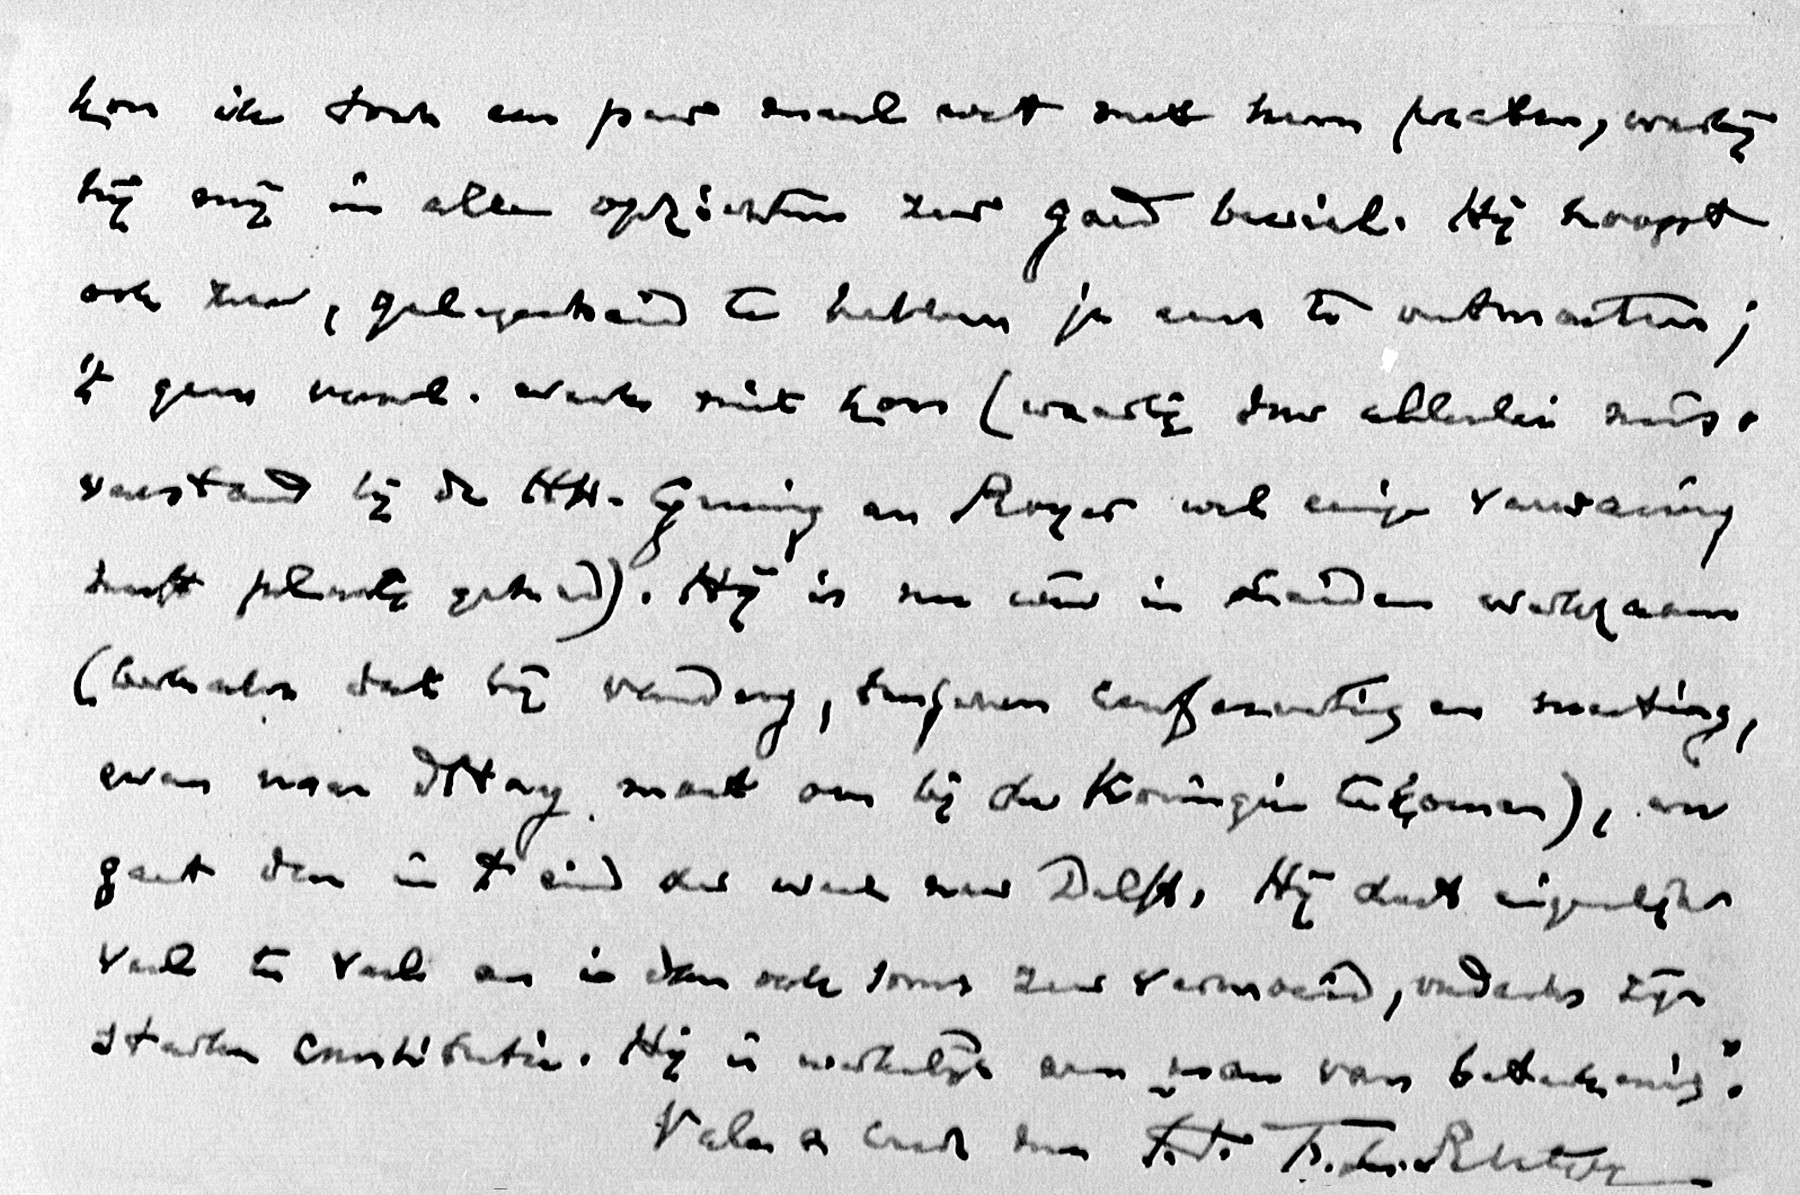 kon ik toch een paar maal wat met hem praten, waarbij
hij mij in allen opzichten zeer goed beviel. Hij hoopt
ook zeer, gelegenheid te hebben je eens te ontmoeten;
't geen verl. week niet kon (waarbij door allerlei mis-
verstand bij de HH. Gunning en Royer wel eenige verwarring
heeft plaats gehad). Hij is nu weer in Leiden werkzaam
(behalve dat hij vandaag, tusschen en meeting,
even naar dHaag moet om bij de Koningin te komen), en
gaat dan in 't eind der week naar Delft. Hij doet eigenlijk
veel te veel en is dan ook soms zeer vermoeid, ondanks zijn
sterke constitutie. Hij is werkelijk een man van beteekenis".
Vale